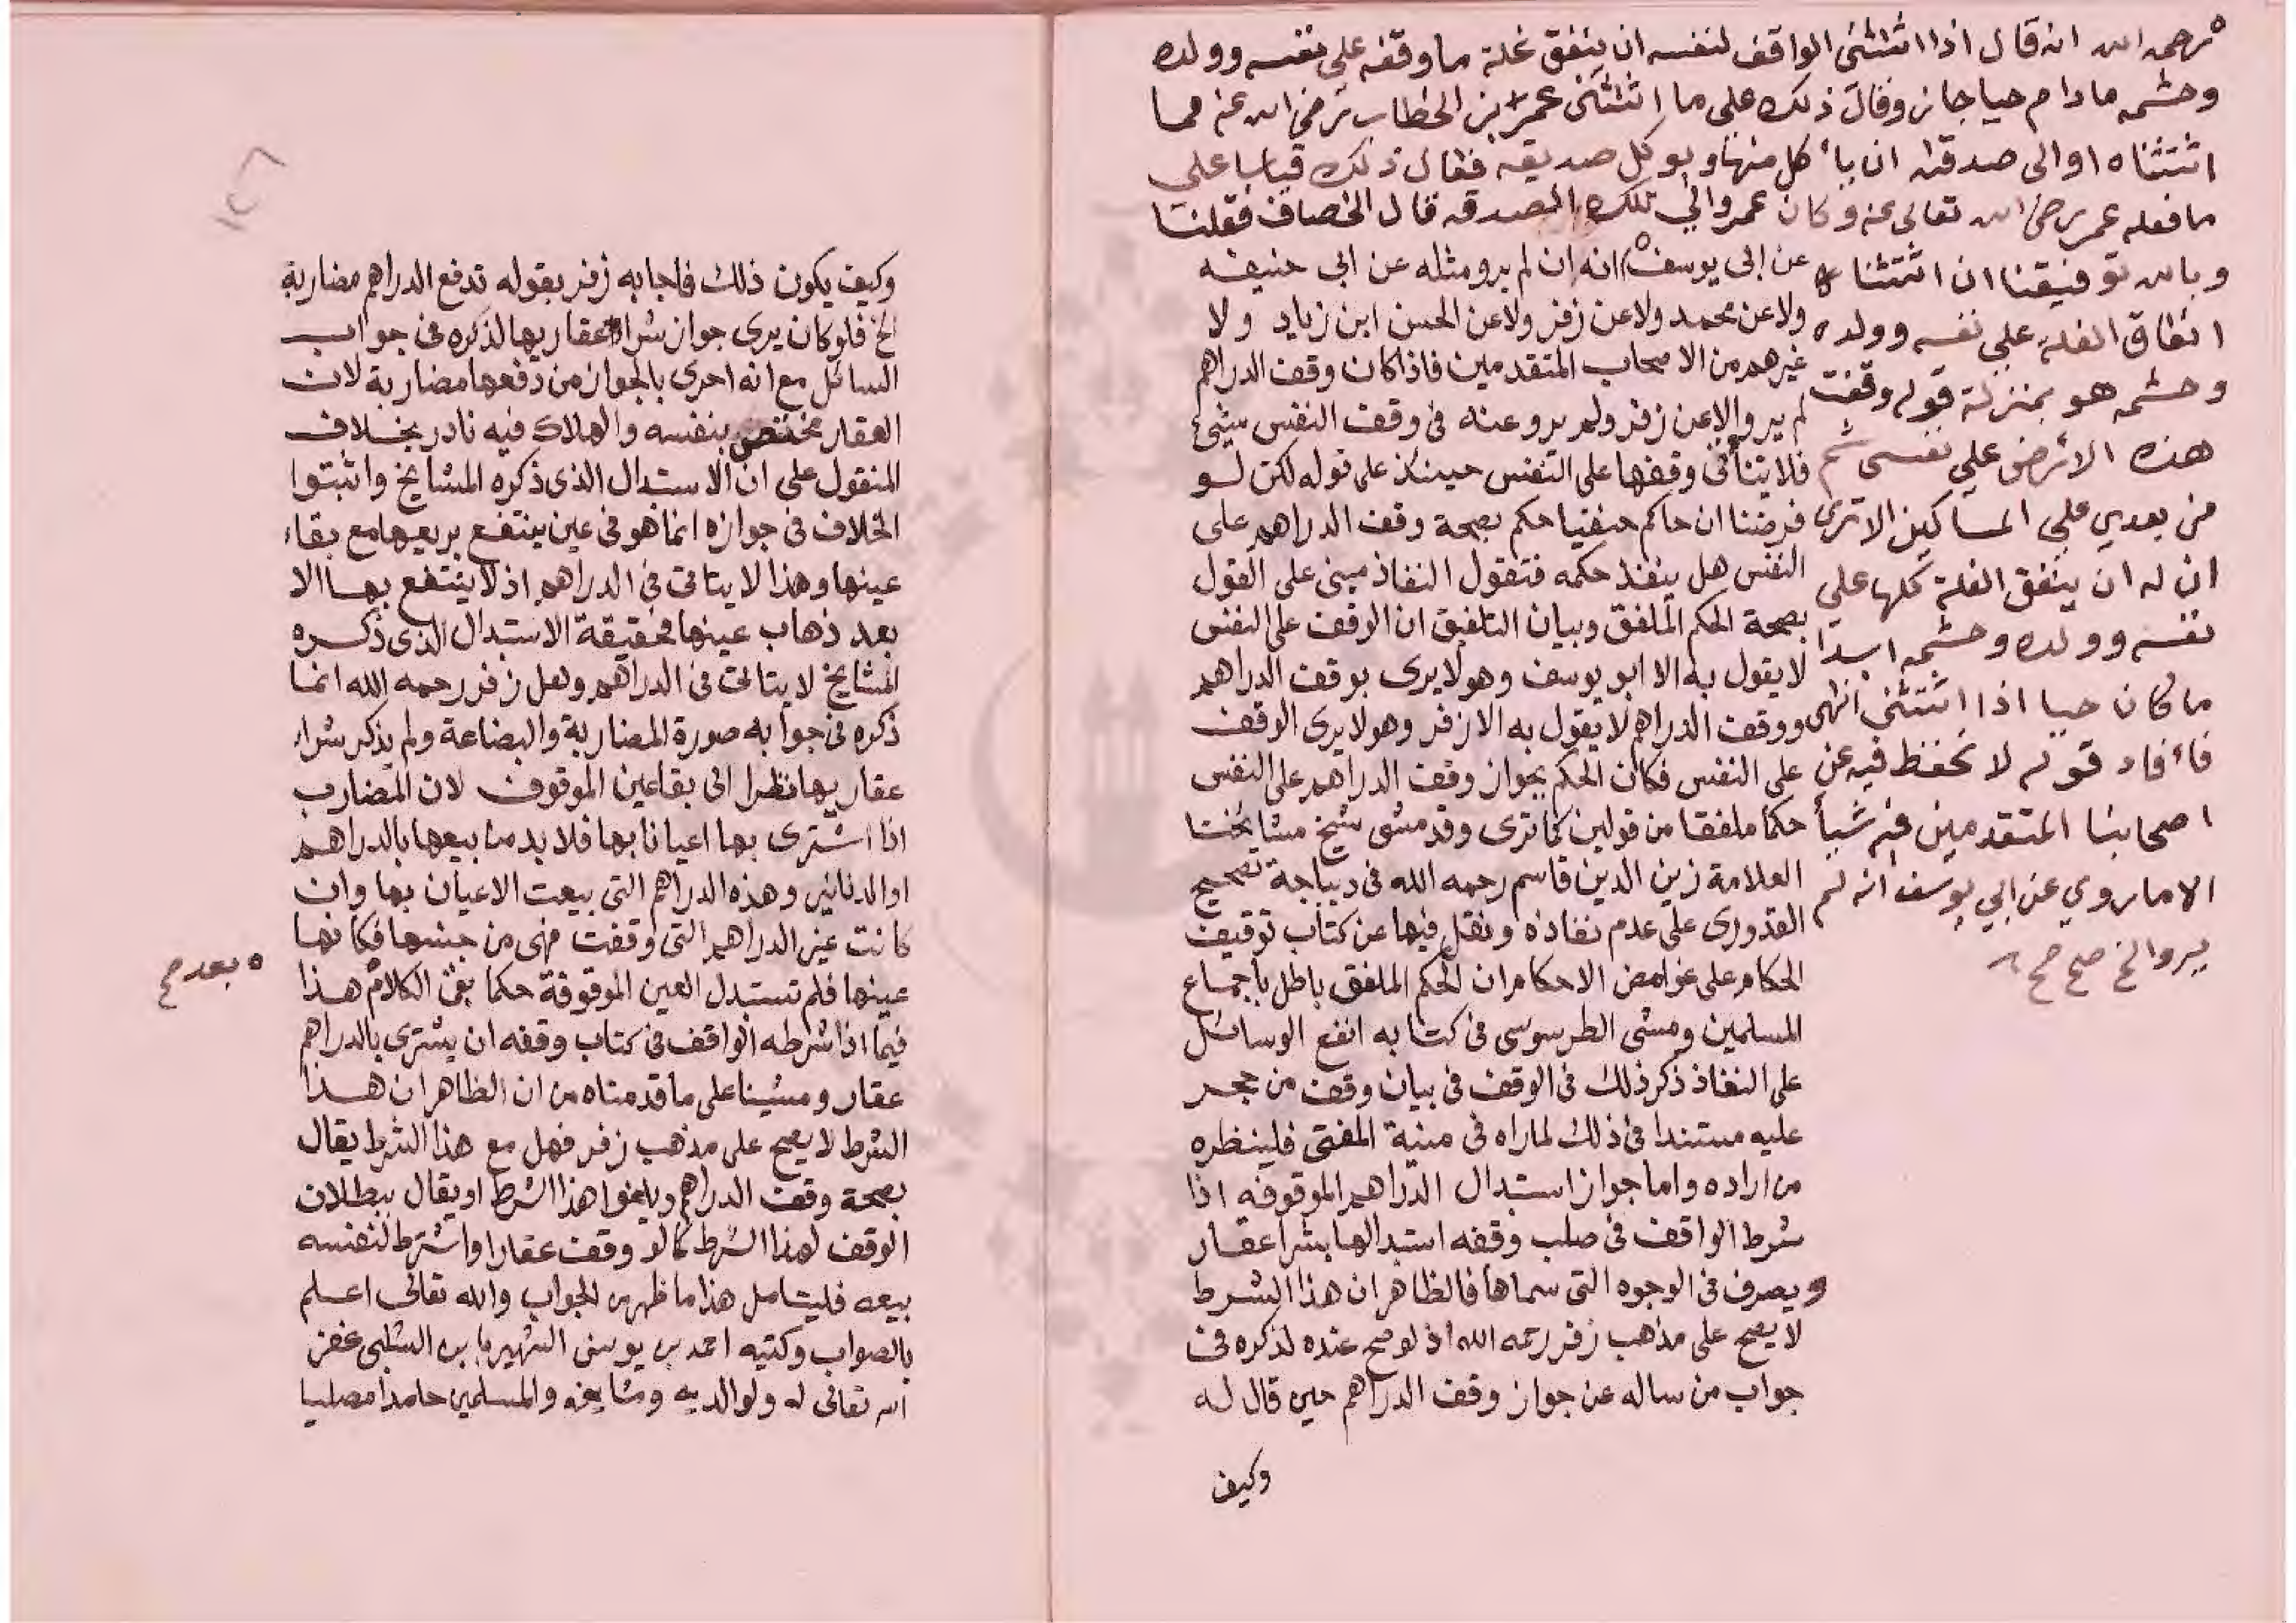 رحمه الله انه قال اذا اثتثنى الواقف لنفسه ان ينفق غلة ما وقفه على نفسه وولده
وحشمه مادام حيا جاز وقال ذلك على ما اثتثنى عمر بن الخطاب رضى الله عنه مما
اثتثناه اوالى صدقته ان يأكل منها ويوكل صديقه فقال ذلك قياسا على
ما فعله عمر رضى الله تعالى عنه وكان عمر والي تلك الصدقه قال الخصاف فقلنا
وبالله توفيقنا ان اثتثناءه
انفاق الغلة على نفسه وولده
وحشمه هو بمنزلة قوله وقفت
هذه الارض على نفسى ثم
من بعدي على المساكين الاترى
ان له ان ينفق الغلة كلها على
نفسه وولده وحشمه ابدا
ماكان حيا اذا اثتثنى انتهى
فأفاد قوله لا نحفظ فيه عن
اصحابنا المتقدمين فيه شيأ
الا ماروي عن ابي يوسف انه لم
يروالخ صح صح
عن ابى يوسف انه ان لم يرو مثله عن ابى حنيفه
ولاعن محمد ولاعن زفر ولاعن الحسن ابن زياد ولا
غيرهم من الاصحاب المتقدمين فاذا كان وقف الدراهم
لم يرو الاعن زفر ولم يرو عنه فى وقف النفس شيئ
فلا يتأتى وقفها على النفس حينئذ على قوله لكن لو
فرضنا ان حاكم حنفيا حكم بصحة وقف الدراهم على
النفس هل ينفذ حكمه فنقول النفاذ مبنى على القول
بصحة الحكم الملفق وبيان التلفيق ان الوقف على النفس
لا يقول به الا ابو يوسف وهو لا يرى بوقف الدراهم
ووقف الدراهم لا يقول به الا زفر وهو لا يرى الوقف
على النفس فكان الحكم بجواز وقف الدراهم على النفس
حكما ملفقا من قولين كما ترى وقد مشى شيخ مشايخنا
العلامة زين الدين قاسم رحمه الله فى ديباجة تصحيح
القدورى على عدم نفاذه ونقل فيها عن كتاب توقيف
الحكام على غوامض الاحكام ان الحكم الملفق باطل بأجماع
المسلمين ومشى الطرسوسى فى كتابه انفع الوسائل
على النفاذ ذكر ذلك فى الوقف فى بيان وقف من حجر
عليه مستندا فى ذلك لما راه فى منية المفتى فلينظره
من اراده واما جواز استبدال الدراهم الموقوفه اذا
شرط الواقف فى صلب وقفه استبدالها بشرا عقار
ويصرف فى الوجوه التى سماها فالظاهر ان هذا الشرط
لا يصح على مذهب زفر رحمه الله اذ لو صح عنده لذكره فى
جواب من ساله عن جواز وقف الدراهم حين قال له
وكيف
وكيف يكون ذلك فاجابه زفر بقوله تدفع الدراهم مضاربة
الخ فلو كان يرى جواز شراء عقار بها لذكره فى جواب
السائل مع انه احرى بالجواز من دفعها مضاربة لان
العقار مختص بنفسه والهلاك فيه نادر بخلاف
المنقول على ان الاستدال الذى ذكره المشايخ واثبتوا
الخلاف فى جوازه انما هو فى عين ينتفع بريعها مع بقاء
عينها وهذا لا يتاتى فى الدراهم اذ لا ينتفع بها الا
بعد ذهاب عينها فحقيقة الاستبدال الذى ذكره
المشايخ لا يتاتى فى الدراهم ولعل زفر رحمه الله انما
ذكره فى جوابه صورة المضاربة والبضاعة ولم يذكر شراء
عقار بها نظرا الى بقاعين الموقوف لان المضارب
اذا اشترى بها اعيانا بها فلا بد من بيعها بالدراهم
او الدنانير وهذه الدراهم التى بيعت الاعيان بها وان
كانت غير الدراهم التى وقفت فهى من جنسها فكانها
عينها فلم تستبدل العين الموقوفة حكما بقى الكلام هذا
بعد صح
فيما اذا شرطه الواقف فى كتاب وقفه ان يشترى بالدراهم
عقار ومشينا على ما قدمناه من ان الظاهر ان هذا
الشرط لا يصح على مذهب زفر فهل مع هذا الشرط يقال
بصحة وقف الدراهم ويلغوا هذا الشرط او يقال ببطلان
الوقف لهذا الشرط كما لو وقف عقارا واشترط لنفسه
بيعه فليتامل هذا ما ظهر من الجواب والله تعالى اعلم
بالصواب وكتبه احمد بن يونس الشهير بابن الشلبى غفر
الله تعالى له ولوالديه ومشايخه والمسلمين حامدا مصليا